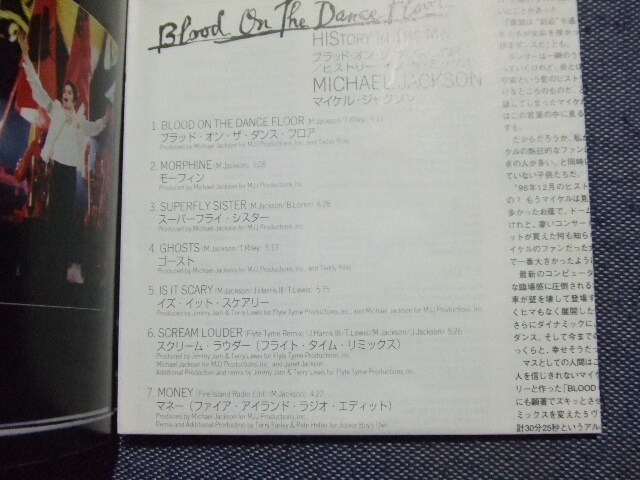 Blood On The Dance Floor
HIStory In The Mix
ブラッド・オン・ザ・ダンス・フロア
／ヒストリー・イン・ザ・ミックス
MICHAEL JACKSON
マイケル・ジャクソン
1. BLOOD ON THE DANCE FLOOR (M.Jackson/T.Riley) 4:11
ブラッド・オン・ザ・ダンス・フロア
Produced by Michael Jackson for MJJ Productions, Inc. and Teddy Riley
2. MORPHINE (M.Jackson) 6:28
モーフィン
Produced by Michael Jackson for MJJ Productions, Inc.
3. SUPERFLY SISTER (M.Jackson/B.Loren) 6:28
スーパーフライ・シスター
Produced by Michael Jackson for MJJ Productions, Inc.
4. GHOSTS (M.Jackson/T.Riley) 5:13
ゴースト
Produced by Michael Jackson for MJJ Productions, Inc. and Teddy Riley
5. IS IT SCARY (M.Jackson/J.Harris III/T.Lewis) 5:35
イズ・イット・スケアリー
Produced by Jimmy Jam & Terry Lewis for Flyte Tyme Productions, Inc., and Michael Jackson for MJJ Productions, Inc.
6. SCREAM LOUDER (Flyte Tyme Remix) (J.Harris III/T.Lewis/M.Jackson/J.Jackson) 5:26
スクリーム・ラウダー（フライト・タイム・リミックス）
Produced by Jimmy Jam & Terry Lewis for Flyte Tyme Productions, Inc.
Michael Jackson for MJJ Productions, Inc. and Janet Jackson
Additional Production and remix by Jimmy Jam & Terry Lewis for Flyte Tyme Productions, Inc.
7. MONEY (Fire Island Radio Edit) (M.Jackson) 4:22
マネー（ファイア・アイランド・ラジオ・エディット）
Produced by Michael Jackson for MJJ Productions, Inc.
Remix and Additional Production by Terry Farley & Pete Heller for Junior Boy's Own
だからだろうか、
ケルの熱狂的なファン
求の人が多い。と同時
ていない子供たちだ。
'96年12月のヒスト
の？もうマイケルは見
多かったお蔭で、ドー
けれど、凄いコンサー
ットが買えた何も知ら
イケルのファンだった
で一番大きかったように
最新のコンピュータ
な臨場感に圧倒される
車が壁を壊して登場す
くヒマもなく展開した
さらにダイナミックに、
ダンス、そして今まで
っくらと、幸せそうだっ
マスとしての人間はこ
人を信じきれないマイケ
リーと作った「BLOOD
にも顕著でスキッとさせ
ミックスを変えた5ヴ
計30分25秒というアル